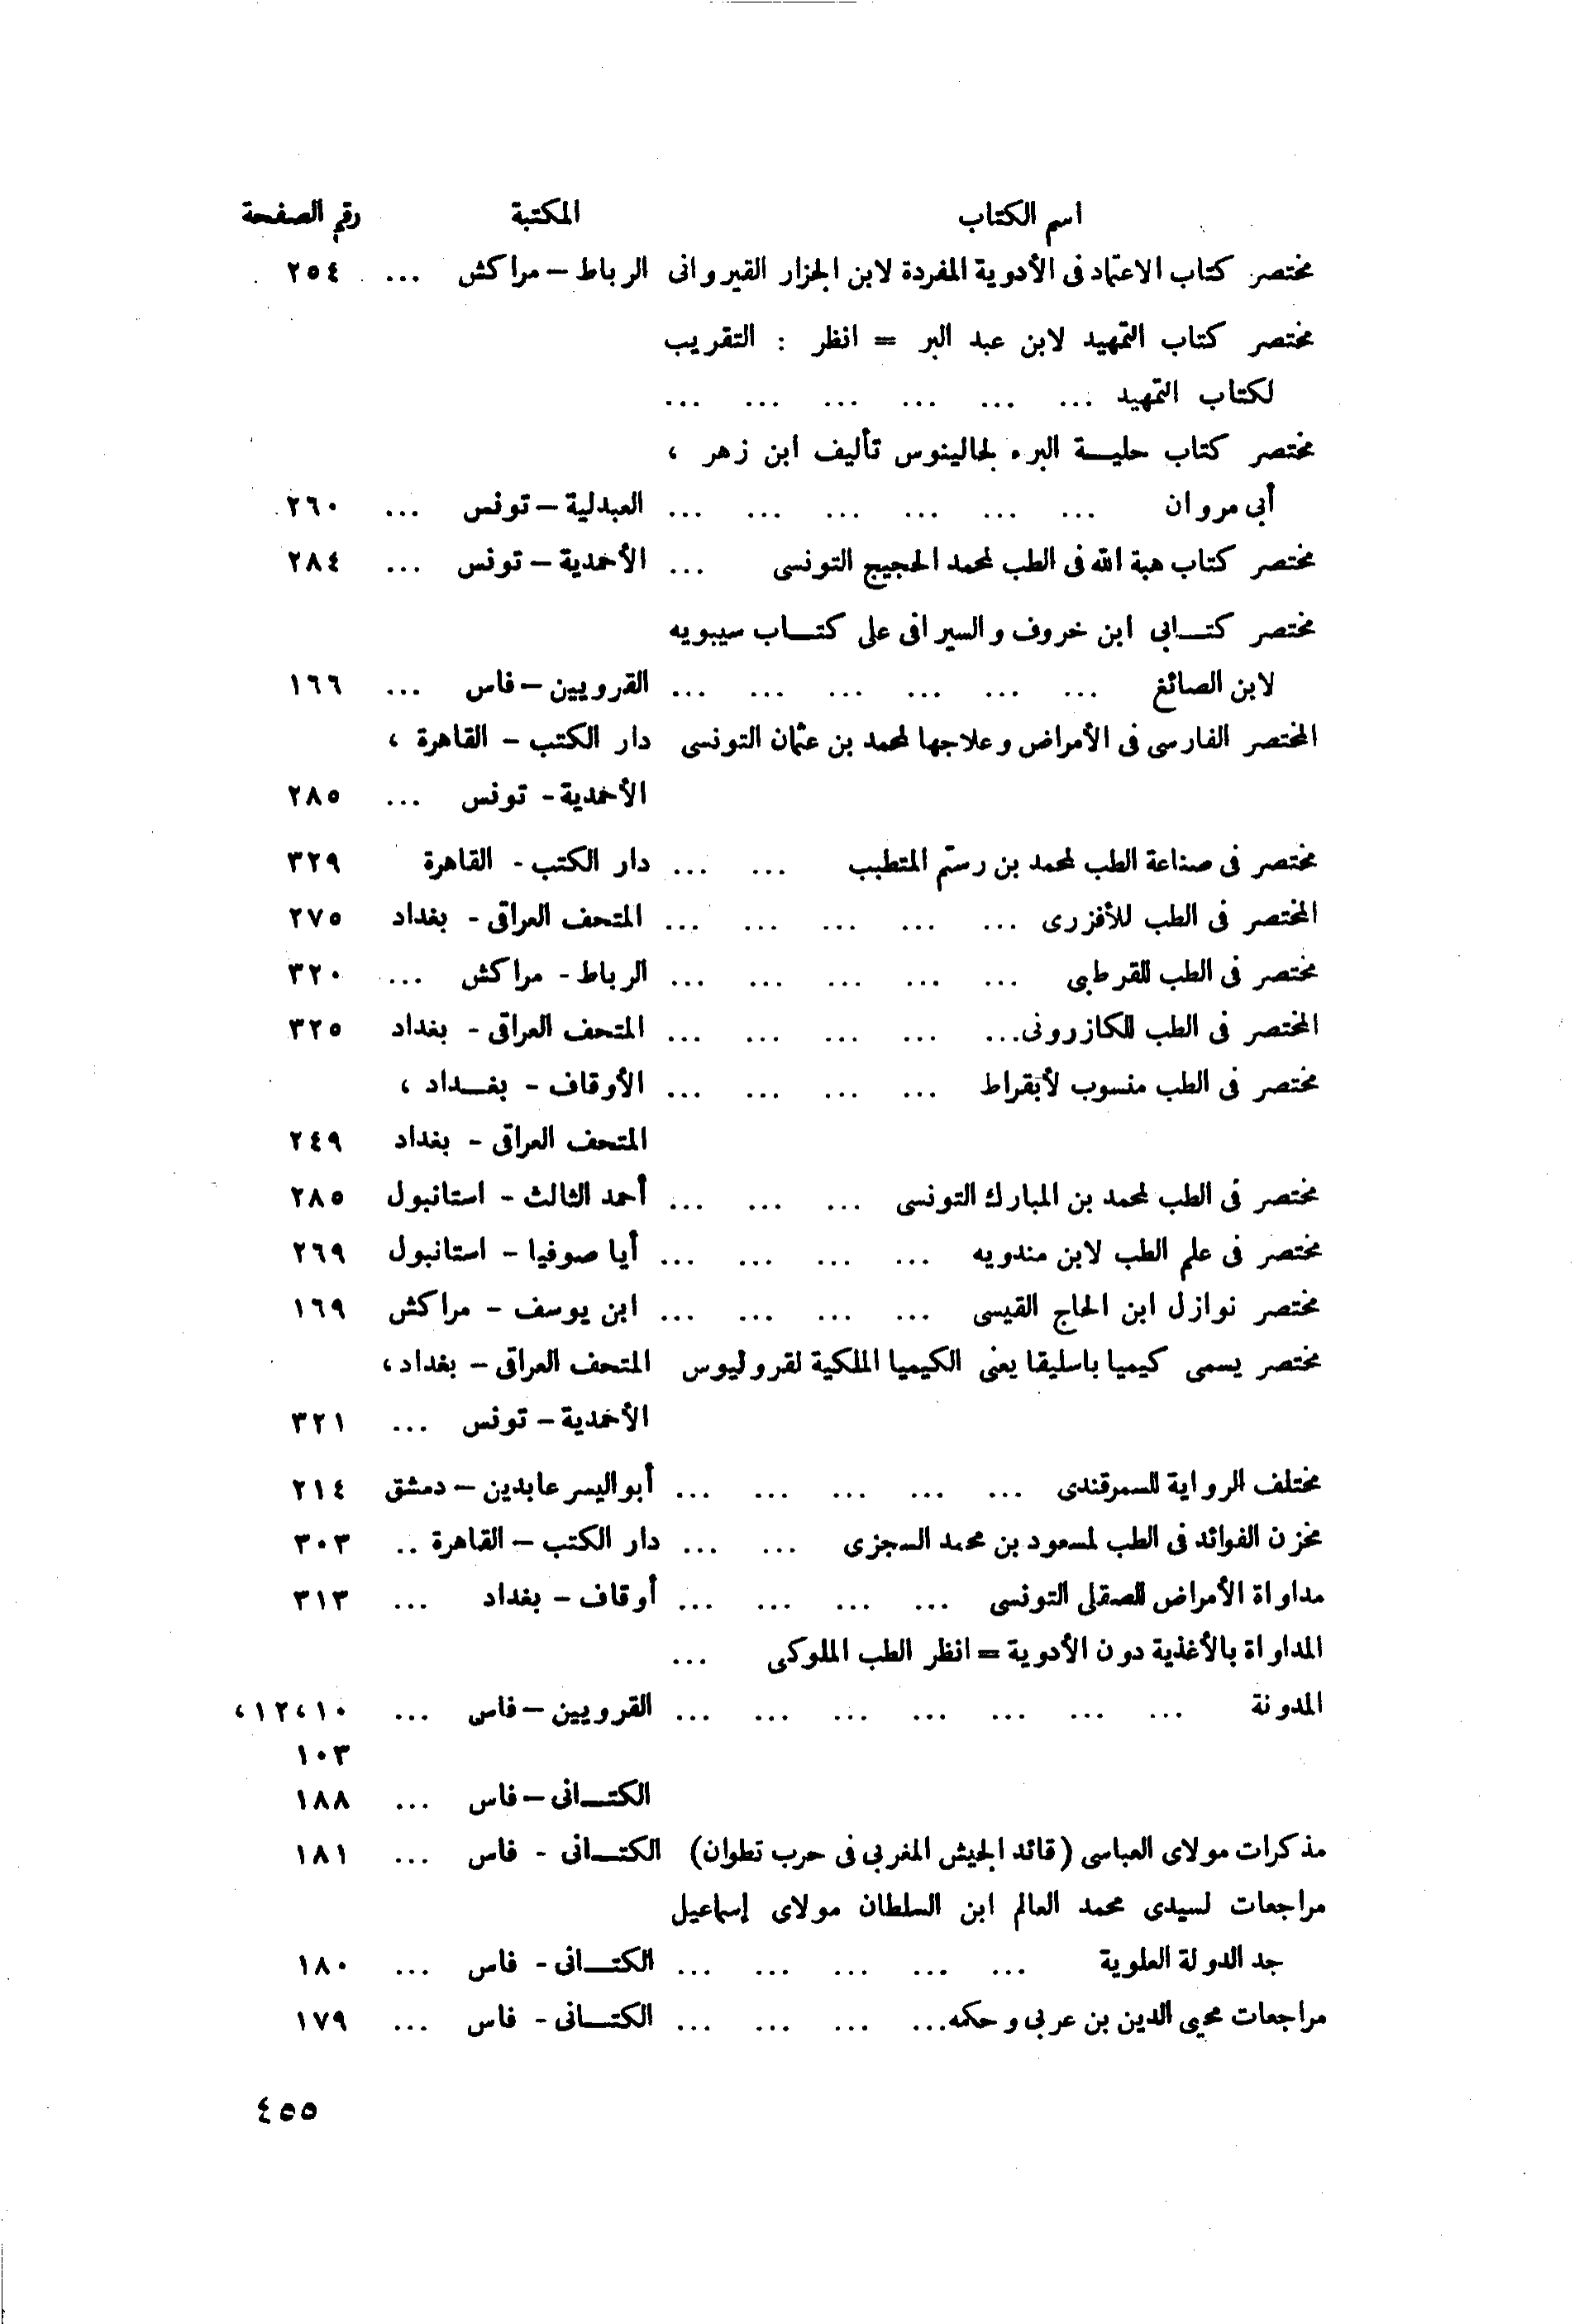 اسم الكتاب المكتبة رقم الصفحة
مختصر كتاب الاعتماد فى الأدوية المفردة لابن الجزار القيروانى الرباط – مراكش ... ٢٥٤
مختصر كتاب التمهيد لابن عبد البر = انظر : التقريب
لكتاب التمهيد ... ... ... ... ... ...
مختصر كتاب حليـة البرء لجالينوس تأليف ابن زهر ،
أبى مروان ... ... ... ... ... ... العبدلية – تونس ... ٢٦٠
مختصر كتاب هبة الله فى الطب لمحمد الحجيج التونسى ... الأحمدية – تونس ... ٢٨٤
مختصر كتـابى ابن خروف والسيرافى على كتـاب سيبويه
لابن الصائغ ... ... ... ... ... ... القرويين – فاس ... ١٦٦
المختصر الفارسى فى الأمراض وعلاجها لمحمد بن عثمان التونسى دار الكتب – القاهرة ،
الأحمدية - تونس ... ٢٨٥
مختصر فى صناعة الطب لمحمد بن رستم المتطبب ... ... دار الكتب - القاهرة ٣٢٩
المختصر فى الطب للأفزرى ... ... ... ... ... المتحف العراقى - بغداد ٢٧٥
مختصر فى الطب للقرطبى ... ... ... ... ... الرباط - مراكش ... ٣٢٠
المختصر فى الطب للكازرونى ... ... ... ... ... المتحف العراقى - بغداد ٣٢٥
مختصر فى الطب منسوب لأبقراط ... ... ... ... الأوقاف - بغـداد ،
المتحف العراقى - بغداد ٢٤٩
مختصر فى الطب لمحمد بن المبارك التونسى ... ... ... أحمد الثالث - استانبول ٢٨٥
مختصر فى علم الطب لابن مندويه ... ... ... ... أيا صوفيا - استانبول ٢٦٩
مختصر نوازل ابن الحاج القيسى ... ... ... ... ابن يوسف - مراكش ١٦٩
مختصر يسمى كيميا باسليقا يعنى الكيميا الملكية لقروليوس المتحف العراقى – بغداد ،
الأحمدية – تونس ... ٣٢١
مختلف الرواية للسمرقندى ... ... ... ... ... أبو اليسر عابدين – دمشق ٢١٤
مخزن الفوائد فى الطب لمسعود بن محمد السجزى ... ... دار الكتب – القاهرة .. ٣٠٣
مداواة الأمراض للصقلى التونسى ... ... ... ... أوقاف – بغداد ... ٣١٣
المداواة بالأغذية دون الأدوية = انظر الطب الملوكى ...
المدونة ... ... ... ... ... ... ... القرويين – فاس ... ١٠،١٢،
١٠٣
الكتـانى – فاس ... ١٨٨
مذكرات مولاى العباسى (قائد الجيش المغربى فى حرب تطوان) الكتـانى - فاس ... ١٨١
مراجعات لسيدى محمد العالم ابن السلطان مولاى إسماعيل
جد الدولة العلوية ... ... ... ... ... الكتـانى - فاس ... ١٨٠
مراجعات محيى الدين بن عربى وحكمه ... ... ... ... الكتـانى - فاس ... ١٧٩
٤٥٥